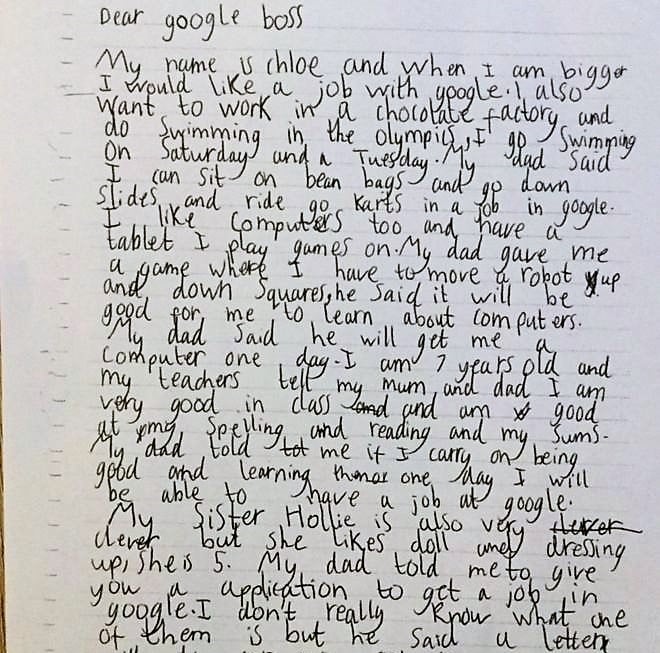 Dear google boss
My name is chloe and when I am bigger
I would like a job with google. I also
want to work in a chocolate factory and
do swimming in the olympics, I go swimming
on Saturday and a Tuesday. My dad said
I can sit on bean bags and go down
slides and ride go karts in a job in google.
I like computers too and have a
tablet I play games on. My dad gave me
a game where I have to move a robot up
and down squares, he said it will be
good for me to learn about computers.
My dad said he will get me a
computer one day. I am 7 years old and
my teachers tell my mum and dad I am
very good in class and am good
at my spelling and reading and my sums.
My dad told me if I carry on being
good and learning one day I will
be able to have a job at google.
My sister Hollie is also very
clever but she likes doll and dressing
up, she is 5. My dad told me to give
you a application to get a job in
google. I don't really know what one
of them is but he said a letter